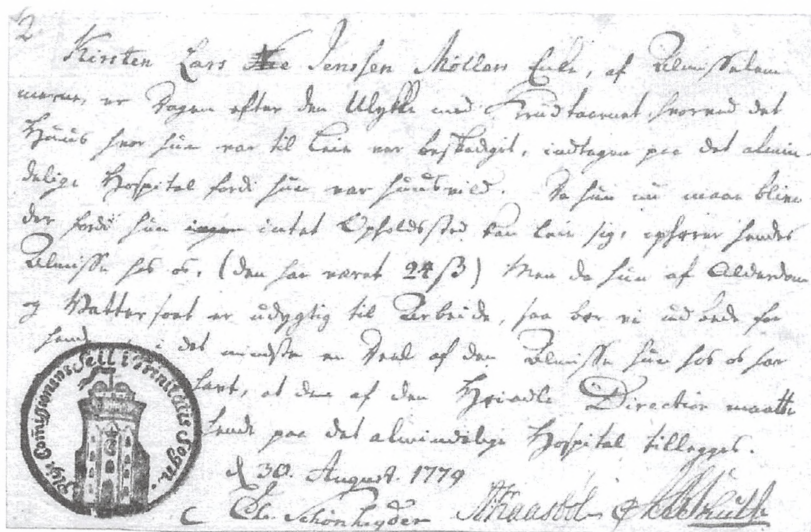 2
Kirsten Lars Jenssen Møllers Enke, af Almisselem
merne, er Dagen efter den Ulykke med Krudtaarnet hvorved det
Huus hvor hun var til Leie var beskadiget, indtagen paa det almin-
delige Hospital fordi hun var huusvild. Da hun nu maae blive
der fordi hun intet Opholdssted kan leie sig, ophører hendes
Almisse hos os, (den har været 24 ß) Men da hun af Alderdom
og Vattersoet er udygtig til Arbeide, saa bør vi udbede for
hende i det mindste en Deel af den Almisse hun hos os har
havt, at den af den Høiædle Direction maatte
hende paa det almindelige Hospital tillegges.
d 30. August. 1779
Schönheyder
Comissionens Seil i Trinitatis Sogn.